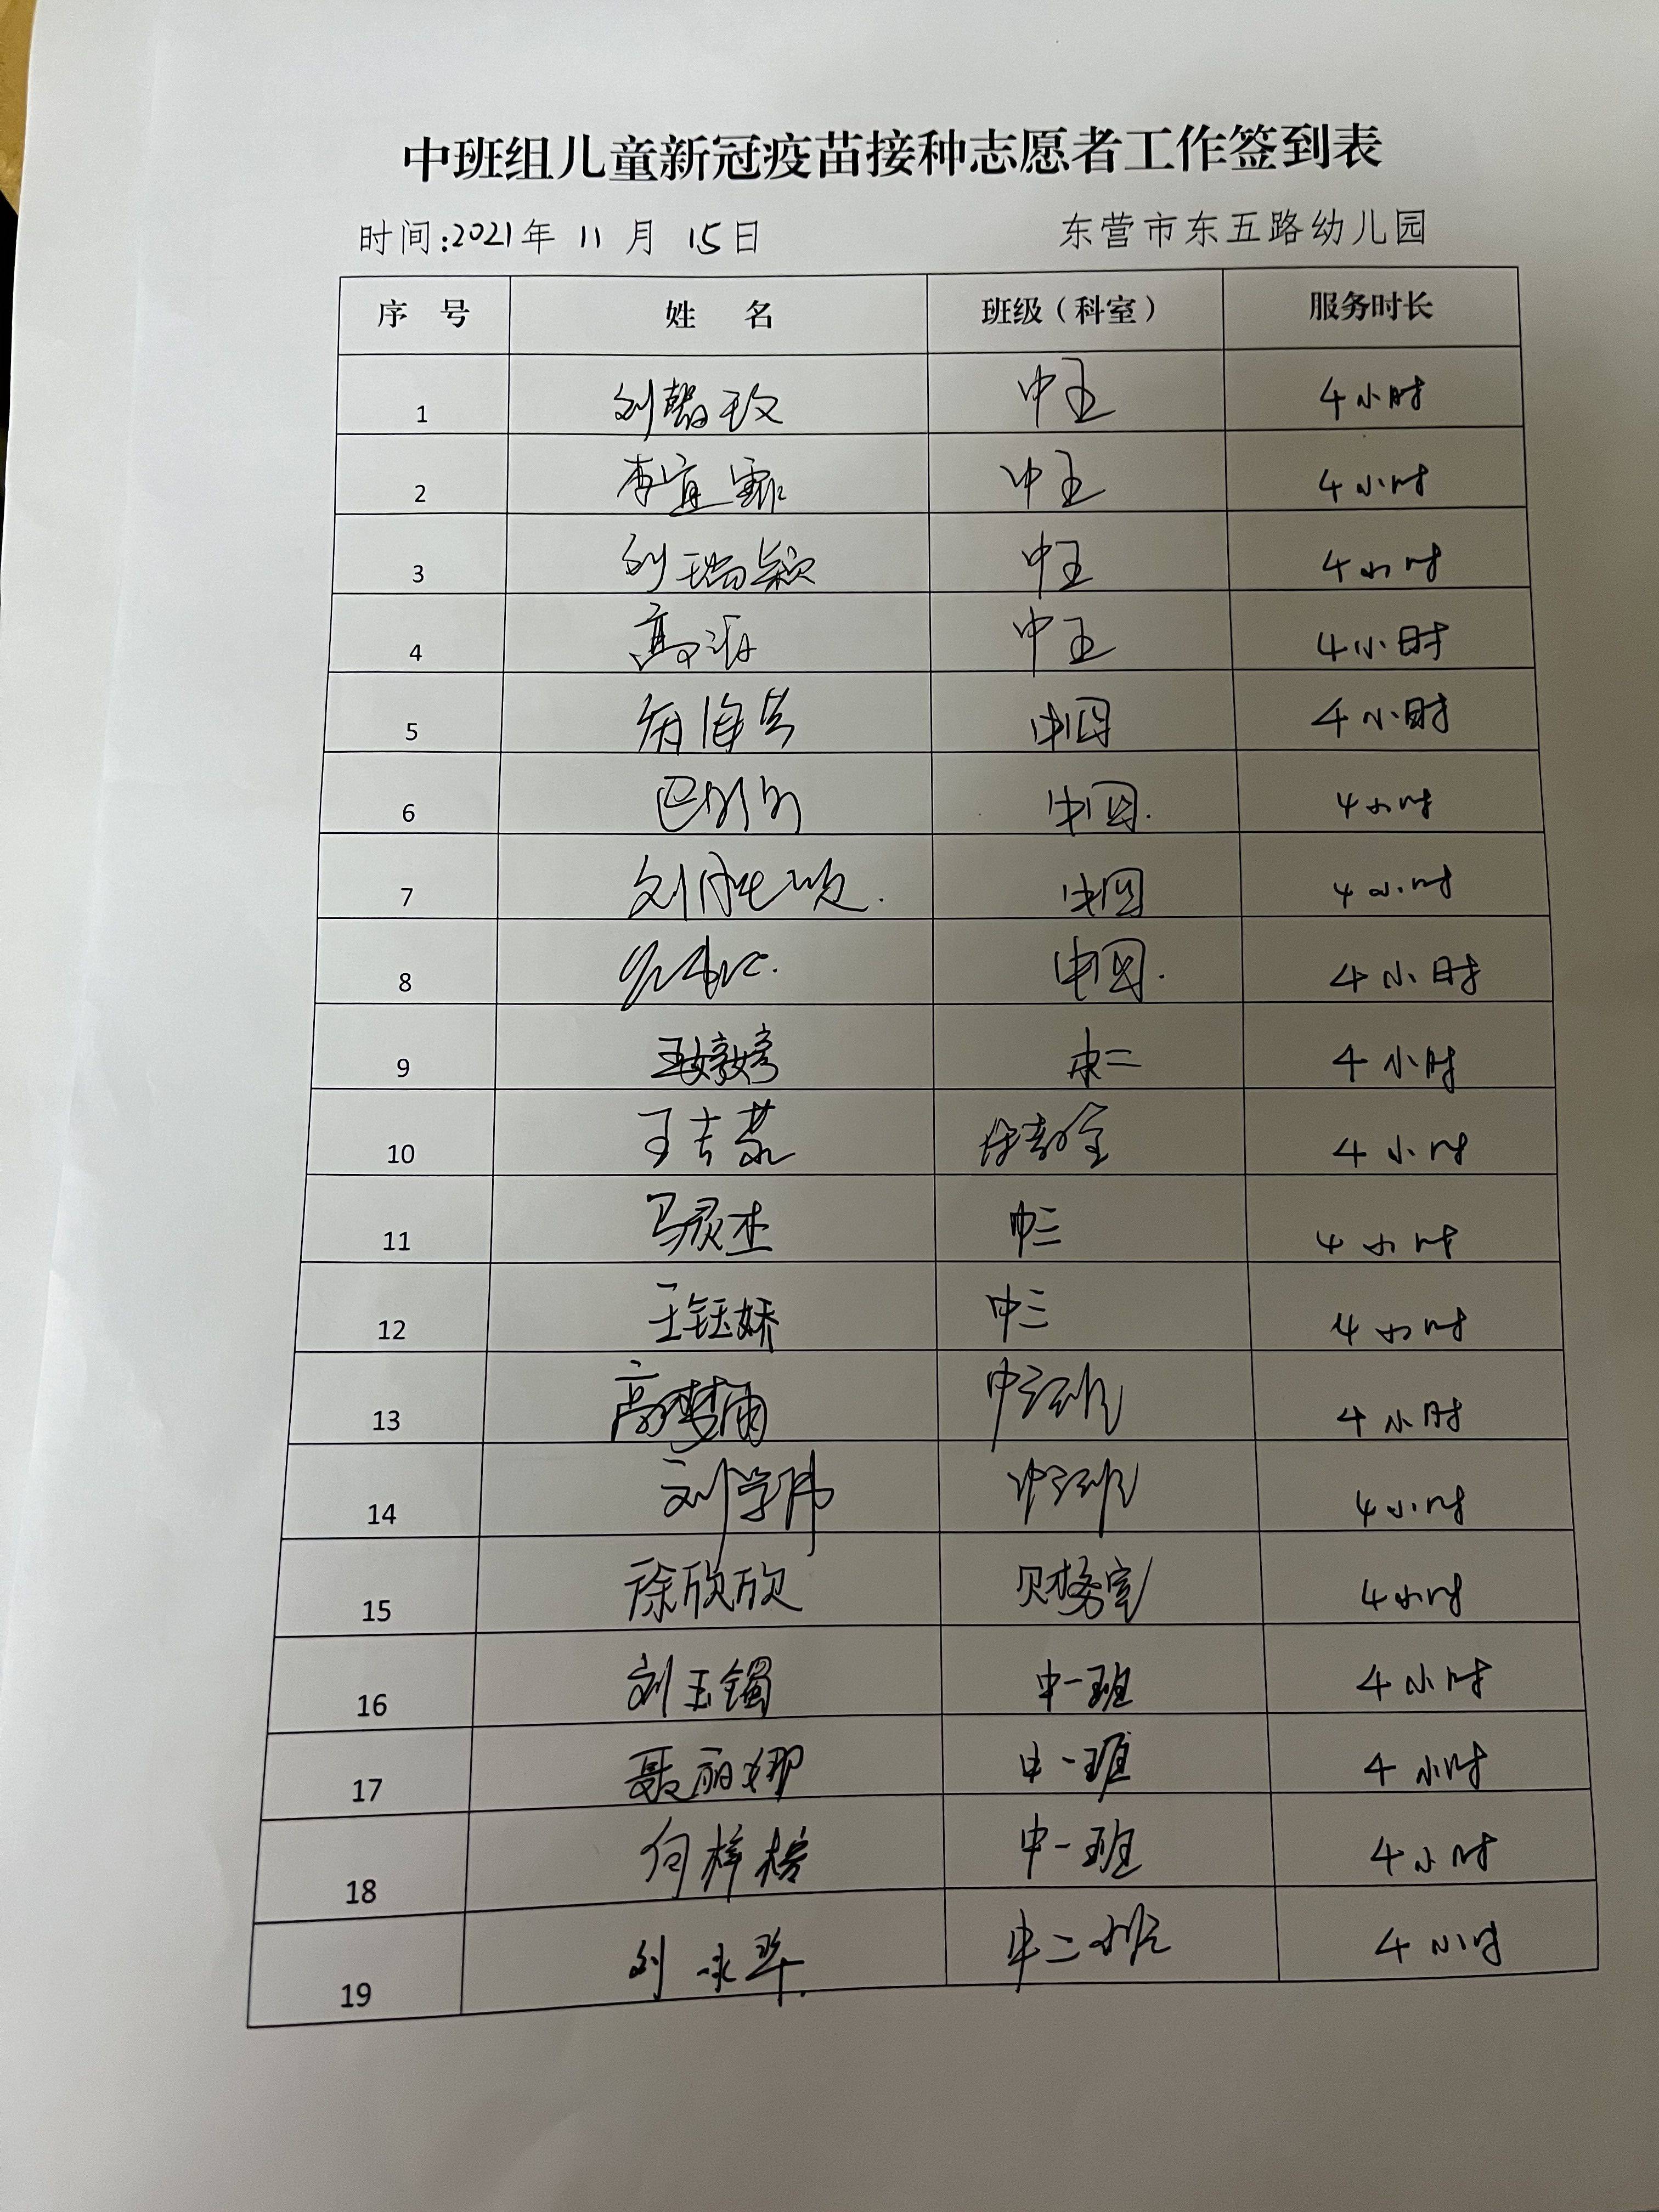 中班组儿童新冠疫苗接种志愿者工作签到表
时间:2021年 11 月 15日 东营市东五路幼儿园
序 号 姓 名 班级（科室） 服务时长
1 刘馨玫 中五 4小时
2 李宜霏 中五 4小时
3 刘瑞颖 中五 4小时
4 高 中五 4小时
5 中四 4小时
6 巴 中四 4小时
7 刘 中四 4小时
8 中四 4小时
9 王婷 中二 4小时
10 王吉荣 4小时
11 马灵杰 中三 4小时
12 王钰娇 中三 4小时
13 高梦雨 中三班 4小时
14 刘学伟 中三班 4小时
15 徐欣欣 财务室 4小时
16 刘玉镯 中一班 4小时
17 聂丽娜 中一班 4小时
18 何梓榕 中一班 4小时
19 刘永华 中二班 4小时